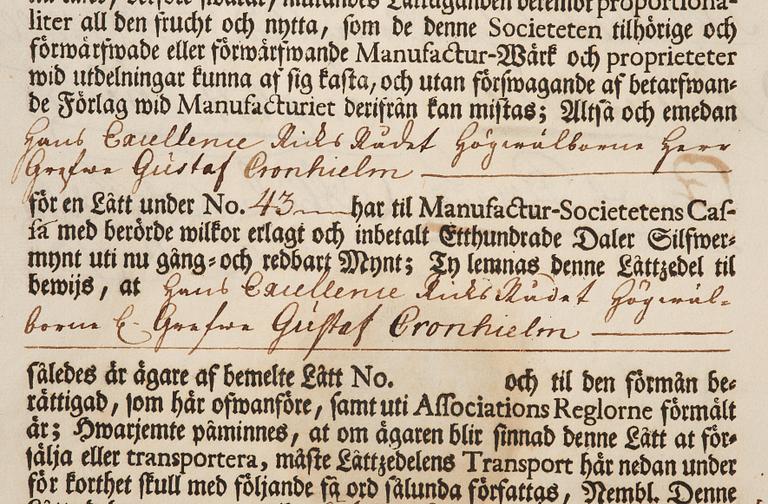 liter all den frucht och nytta, som de denne Societeten tilhörige och
förwärfwade eller förwärfwande Manufactur-Wärk och proprieteter
wid utdelningar kunna af sig kasta, och utan förswagande af betarfwan=
de Förlag wid Manufacturiet derifrån kan mistas; Altså och emedan
Hans Excellence Riks Rådet Högwälborne Herr
Grefwe Gustaf Cronhielm
för en Lått under No. 43 har til Manufactur-Societetens Cas-
sa med berörde wilkor erlagt och inbetalt Etthundrade Daler Silfwer=
mynt uti nu gång= och redbart Mynt; Ty lemnas denne Låttzedel til
bewijs, at Hans Excellence Riks Rådet Högwäl-
borne H. Grefwe Gustaf Cronhielm
således är ägare af bemelte Lått No. och til den förmån be=
rättigad, som här ofwanföre, samt uti Associations Reglorne förmält
är; Hwarjemte påminnes, at om ägaren blir sinnad denne Lått at för=
sälja eller transportera, måste Låttzedelens Transport här nedan under
för korthet skull med följande få ord sålunda författas, Nembl. Denne